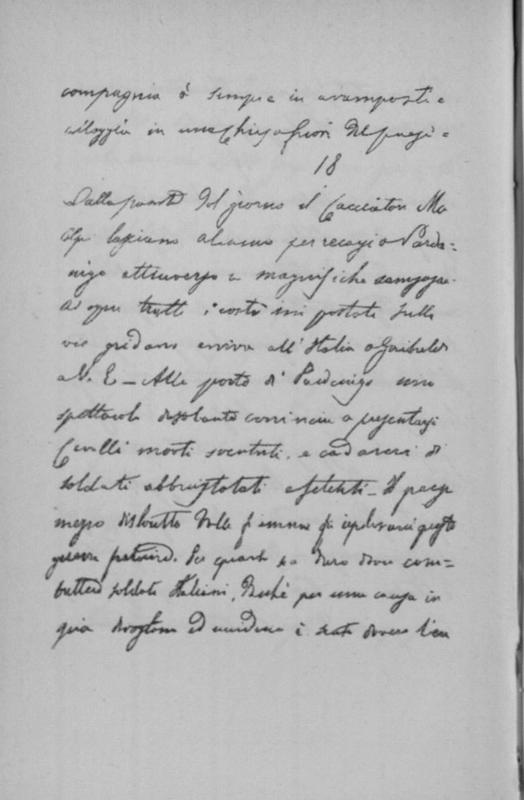 compagnia è sempre in avamposti e
alloggia in una Chiesa fuori del paese
18
Dalla punta del giorno il Cacciatori
lasciano Alcamo per recarsi a Parti=
nigo attraverso a magnifiche campagne
Ad ogni tratti i contadini postati sulla
via gridano evviva all'Italia a Garibaldi
a V. E – Alle porte di Partinigo uno
spettacolo desolante comincia a presentarsi
Cavalli morti, e cadaveri di
soldati abbrustolati e fetenti – Il paese
mezzo distrutto dalle fiamme fa
guerra. Per quanto sia duro dover com=
battere soldati Italiani, Perchè per una causa in
giu ed è stato